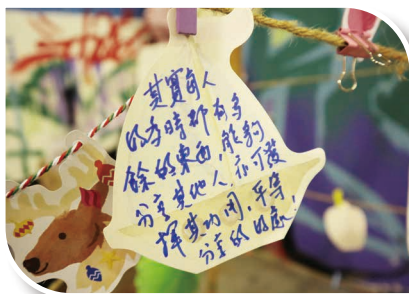 其實每人
好多時都有多
餘的東西，能夠
分享其他人，亦可發
揮其功用，平等
分享的好處！